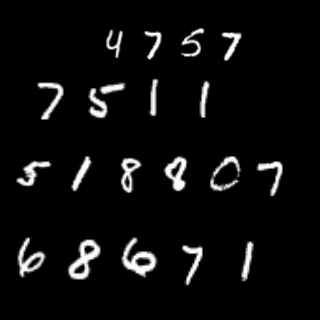 4757
7511
518807
68671